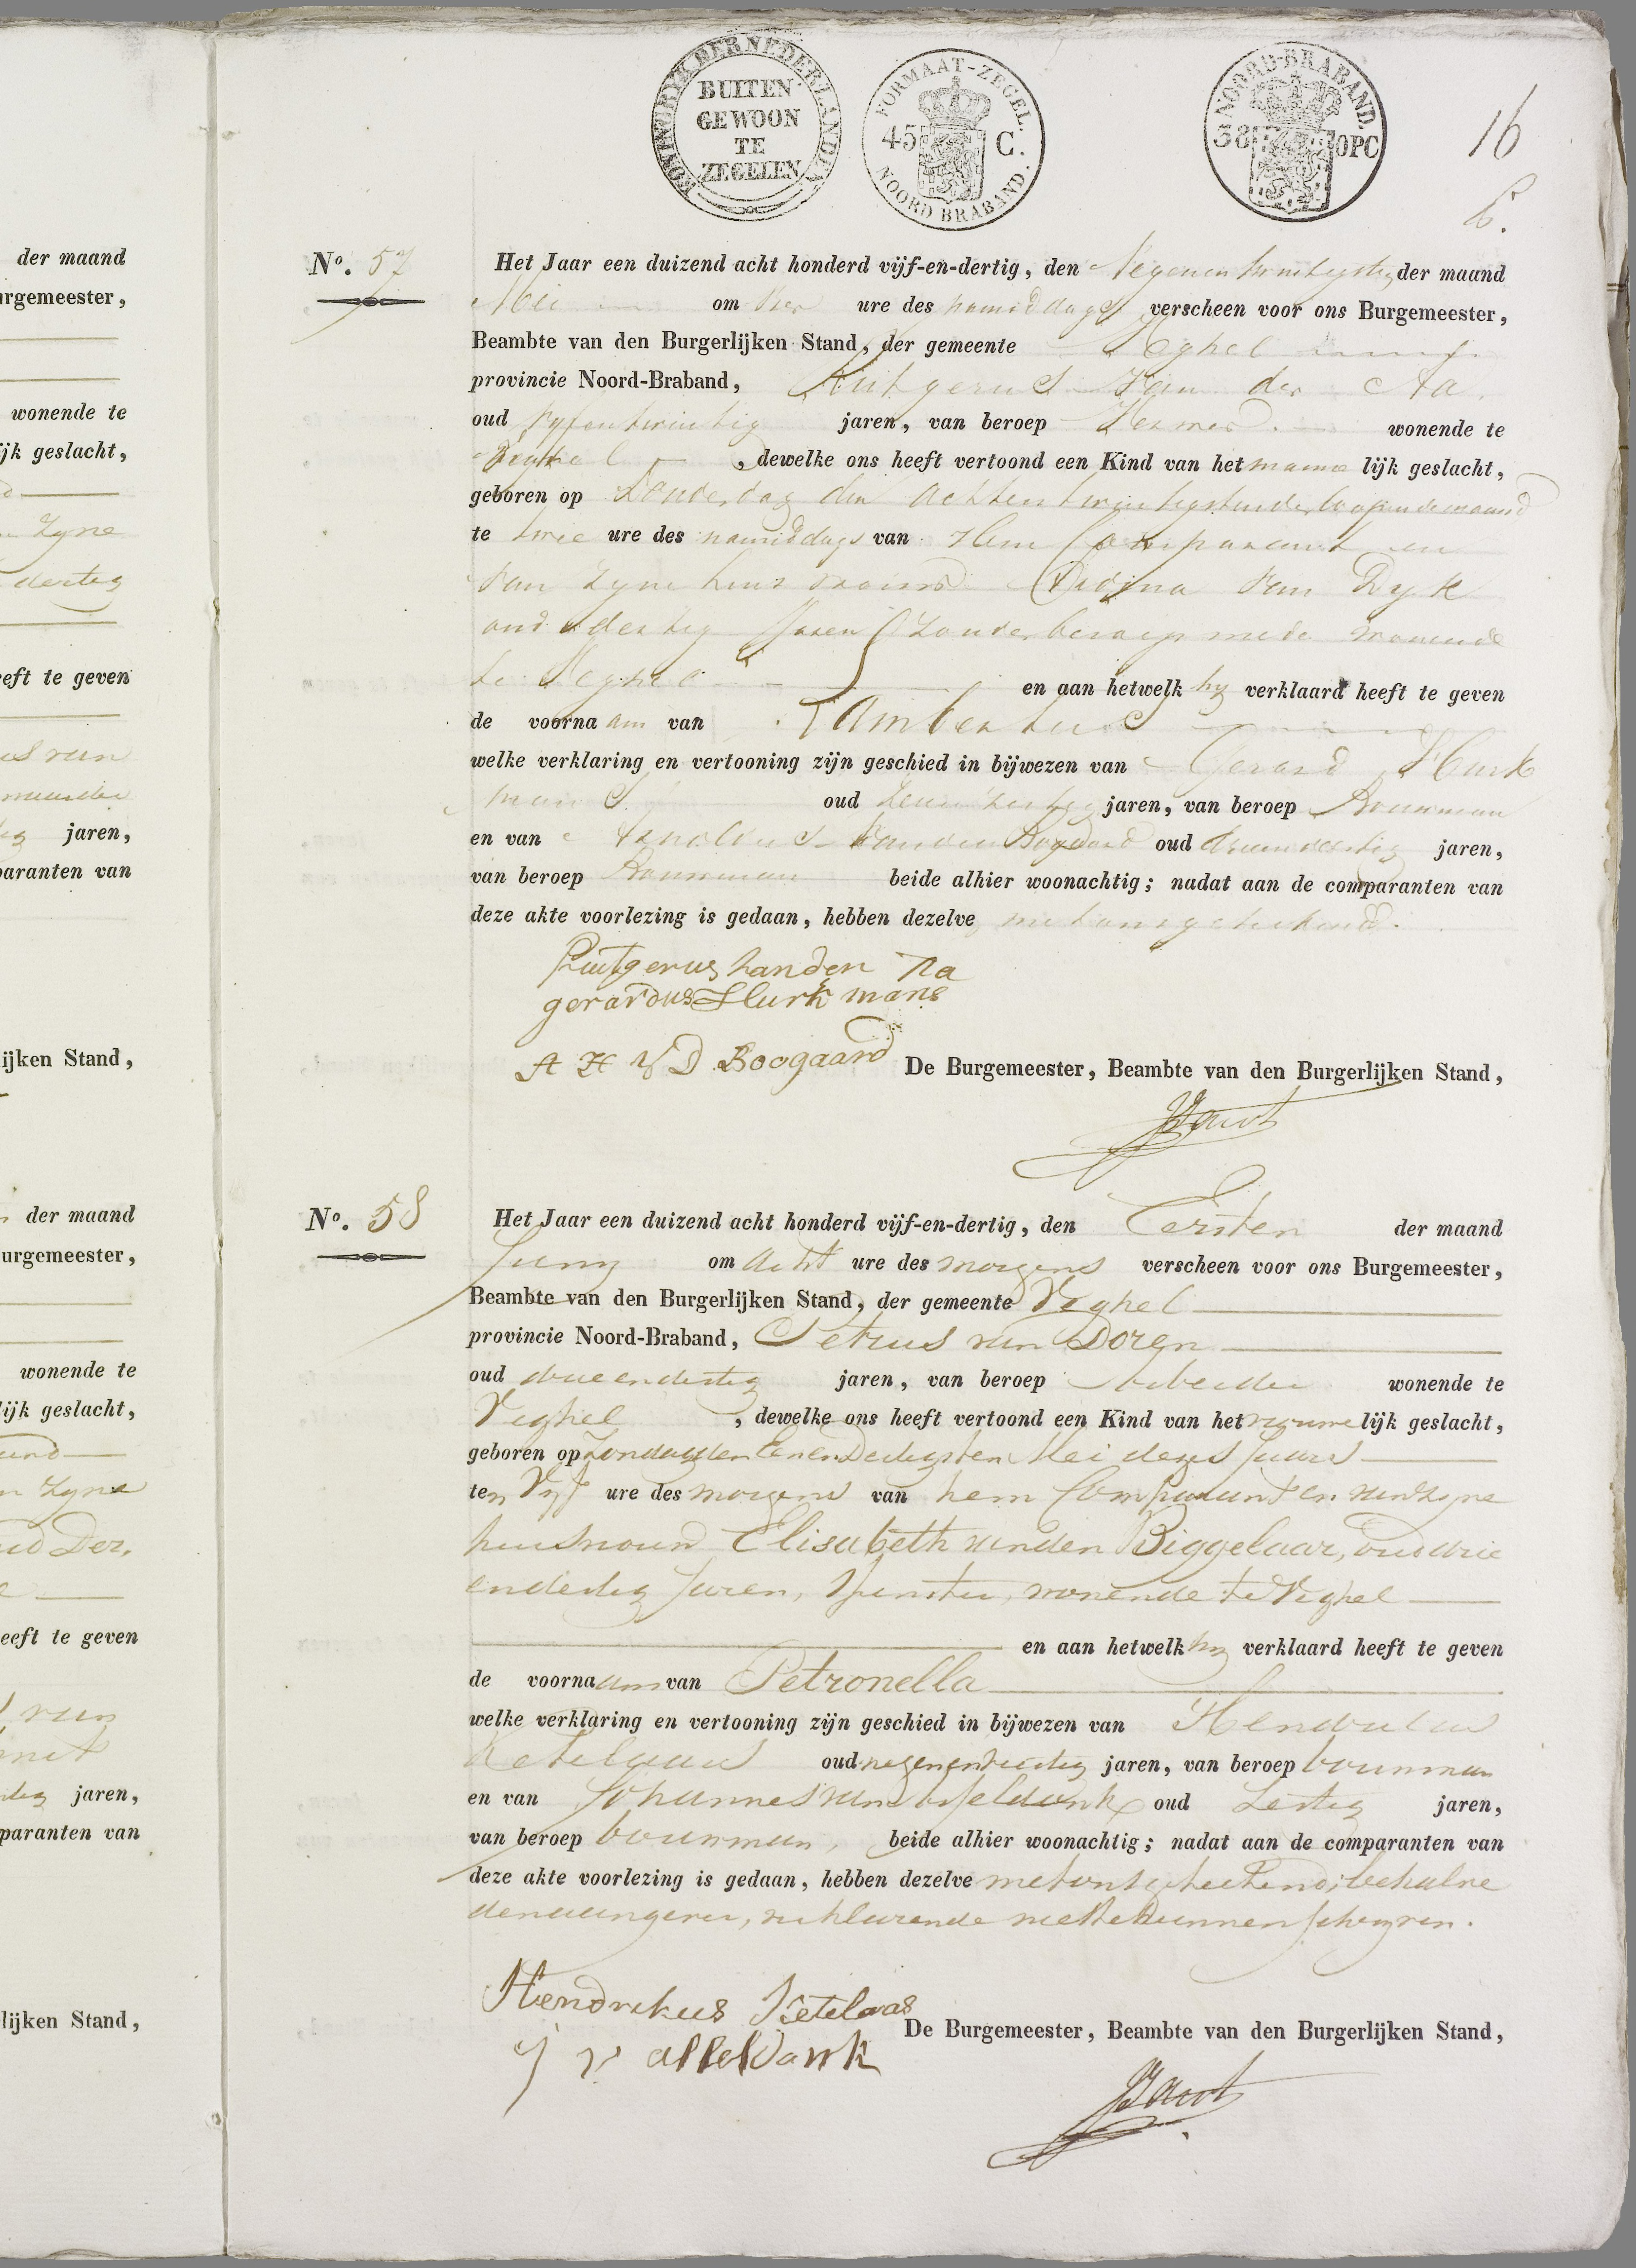 KONINGRYK DER NEDERLANDEN
BUITEN
GEWOON
TE
ZEGELEN
FORMAAT-ZEGEL.
45 C.
NOORD BRABAND.
NOORD-BRABAND.
38 OPC
16
der maand
rgemeester,
wonende te
ijk geslacht,
Zyne
dertig
eft te geven
jaren,
paranten van
ijken Stand,
No. 57
Het Jaar een duizend acht honderd vijf-en-dertig, den Negenentwintigsten der maand
Mei om vier ure des namiddags verscheen voor ons Burgemeester,
Beambte van den Burgerlijken Stand, der gemeente Veghel
provincie Noord-Braband, Rutgerus van der Aa
oud vyfentwintig jaren, van beroep wonende te
Veghel, dewelke ons heeft vertoond een Kind van het manne lijk geslacht,
geboren op Donderdag den achtentwintigsten der loopende maand
te twee ure des namiddags van Hem Comparant en
van zyne huisvrouw van Dyk
oud dertig Jaren zonder beroep mede wonende
te Veghel en aan hetwelk hy verklaard heeft te geven
de voornaam van Lambertus
welke verklaring en vertooning zijn geschied in bijwezen van Gerard Hurk
mans oud jaren, van beroep Bouwman
en van Arnoldus van den Bogaard oud drieendertig jaren,
van beroep Bouwman beide alhier woonachtig; nadat aan de comparanten van
deze akte voorlezing is gedaan, hebben dezelve met ons geteekend.
Rutgerus van der Aa
gerardus Hurkmans
A H V D Boogaard
De Burgemeester, Beambte van den Burgerlijken Stand,
der maand
urgemeester,
wonende te
lijk geslacht,
Zyne
eeft te geven
jaren,
paranten van
lijken Stand,
No. 58
Het Jaar een duizend acht honderd vijf-en-dertig, den Eersten der maand
Juny om acht ure des morgens verscheen voor ons Burgemeester,
Beambte van den Burgerlijken Stand, der gemeente Veghel
provincie Noord-Braband, Petrus van Doren
oud drieendertig jaren, van beroep arbeider wonende te
Veghel, dewelke ons heeft vertoond een Kind van het vrouwe lijk geslacht,
geboren op zondag den Eenendertigsten Mei dezes Jaars
ten Vyf ure des morgens van hem Comparant en van zyne
huisvrouw Elisabeth van den Biggelaar, oud drie
endertig Jaren, Spinster, wonende te Veghel
en aan hetwelk hy verklaard heeft te geven
de voornaam van Petronella
welke verklaring en vertooning zijn geschied in bijwezen van Hendrikus
Ketelaars oud negenentwintig jaren, van beroep bouwman
en van Johannes van Asseldonk oud Zestig jaren,
van beroep bouwman, beide alhier woonachtig; nadat aan de comparanten van
deze akte voorlezing is gedaan, hebben dezelve met ons geteekend, behalve
den aangever, verklarende niet te kunnen schryven.
Hendrikus Ketelaas
J v alleldonk
De Burgemeester, Beambte van den Burgerlijken Stand,